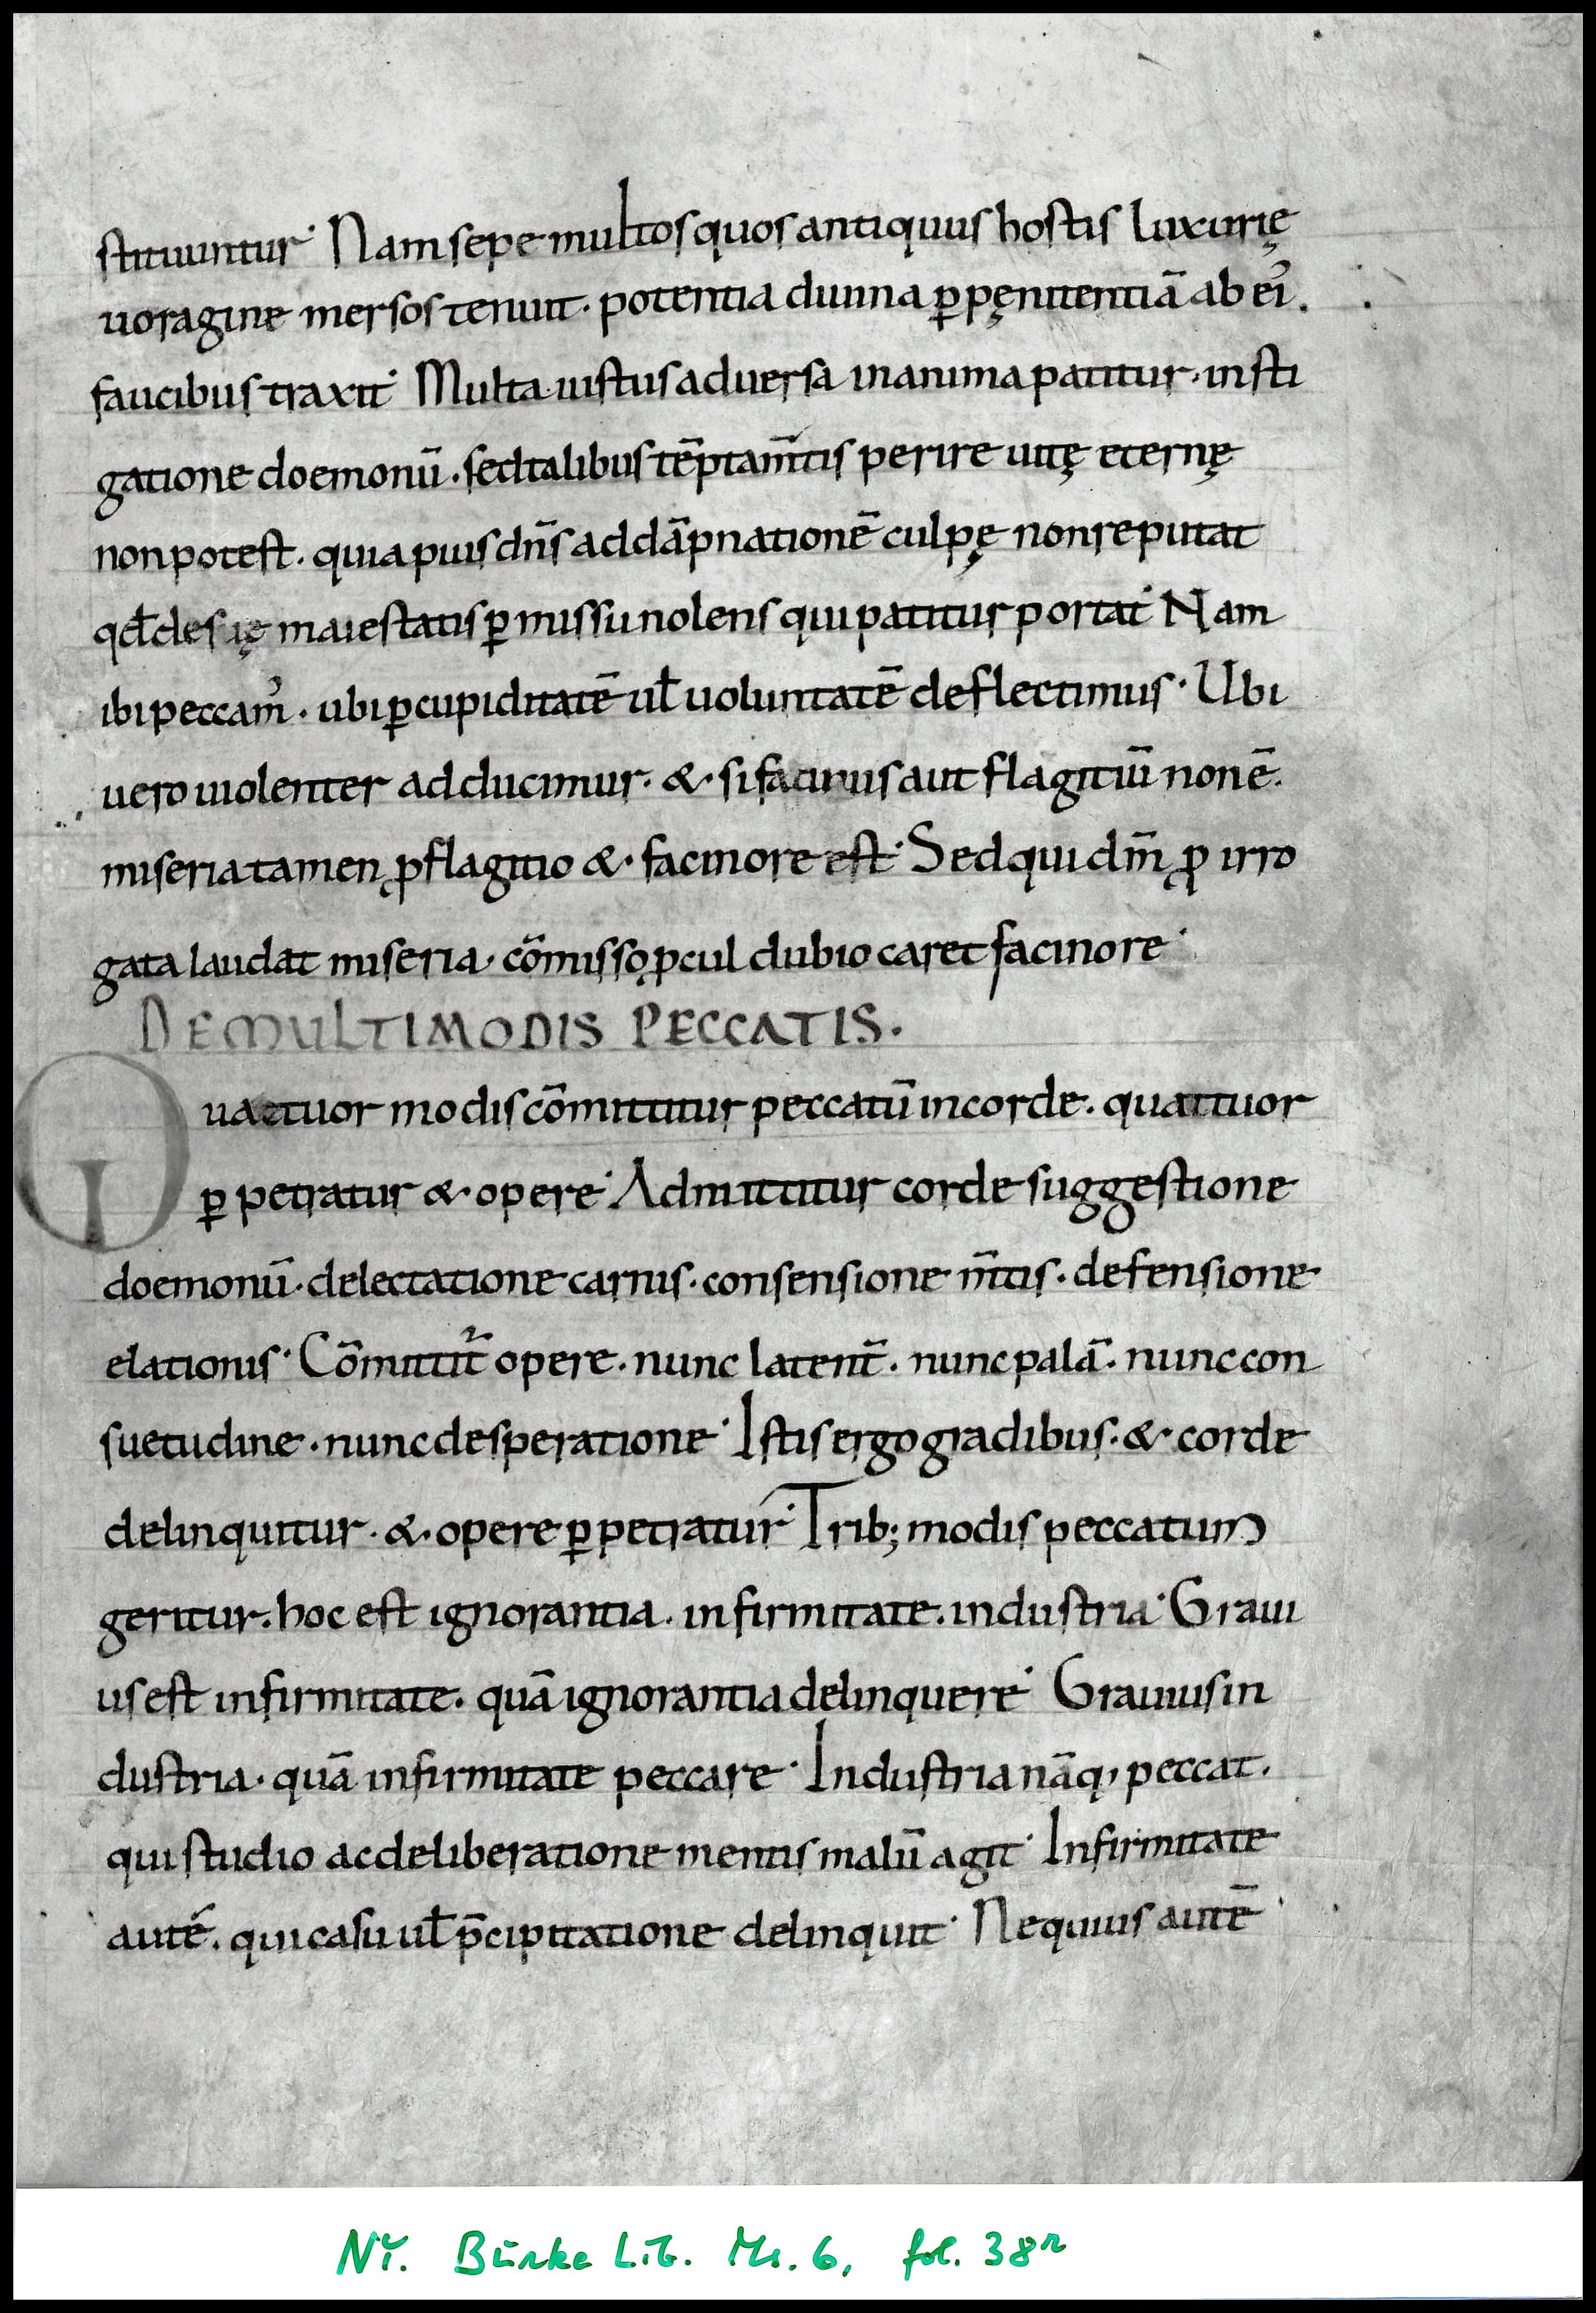 stituuntur· Nam sepe multos quos antiquus hostis luxurię
uoragine mersos tenuit· potentia diuina ꝑ pęnitentiā ab eiꝰ.
faucibus traxit· Multa iustus aduersa in anima patitur· insti
gatione doemonū· sed talibus tēptam̄tis perire uitę eternę
non potest· quia pius dn̄s ad dāpnationē culpę non reputat
qđ de suę maiestatis ꝑmissu nolens qui patitur portat· Nam
ibi peccamꝰ· ubi ꝑ cupiditatē ul̄ uoluntatē deflectimus· Ubi
uero uiolenter adducimur· &· si facinus aut flagitiū non ē·
miseria tamen ꝓ flagitio &· facinore est· Sed qui dm̄ ꝓ irro
gata laudat miseria· cōmisso ꝓcul dubio caret facinore·
DE MULTIMODIS PECCATIS.
Quattuor modis cōmittitur peccatū in corde· quattuor
ꝑpetratur &· opere· Admittitur corde suggestione
doemonū· delectatione carnis· consensione m̄tis· defensione
elationis· Cōmittit᷑ opere· nunc latent̄· nunc palā· nunc con
suetudine· nunc desperatione· Istis ergo gradibus· &· corde
delinquitur· &· opere ꝑpetratur· Trib; modis peccatum
geritur· hoc est ignorantia· infirmitate· industria· Graui
us est infirmitate· quā ignorantia delinquere· Grauius in
dustria· quā infirmitate peccare· Industria nāq, peccat·
qui studio ac deliberatione mentis malū agit· Infirmitate
autē· qui casu ul̄ p̄cipitatione delinquit· Nequius autē
NY. Burke Lib. Ms. 6, fol. 38r